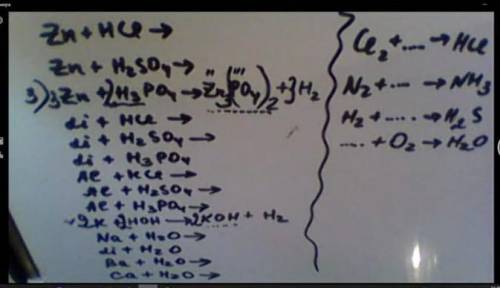 Zn + HCl →
Zn + H₂SO₄ →
3) 3Zn + 2H₃PO₄ → Zn₃(PO₄)₂ + 3H₂
Li + HCl →
Li + H₂SO₄ →
Li + H₃PO₄
Al + HCl →
Al + H₂SO₄ →
Al + H₃PO₄ →
2K + 2HOH → 2KOH + H₂
Na + H₂O →
Li + H₂O
Ba + H₂O →
Ca + H₂O →
Cl₂ + .... → HCl
N₂ + ... → NH₃
H₂ + ..... → H₂S
.... + O₂ → H₂O